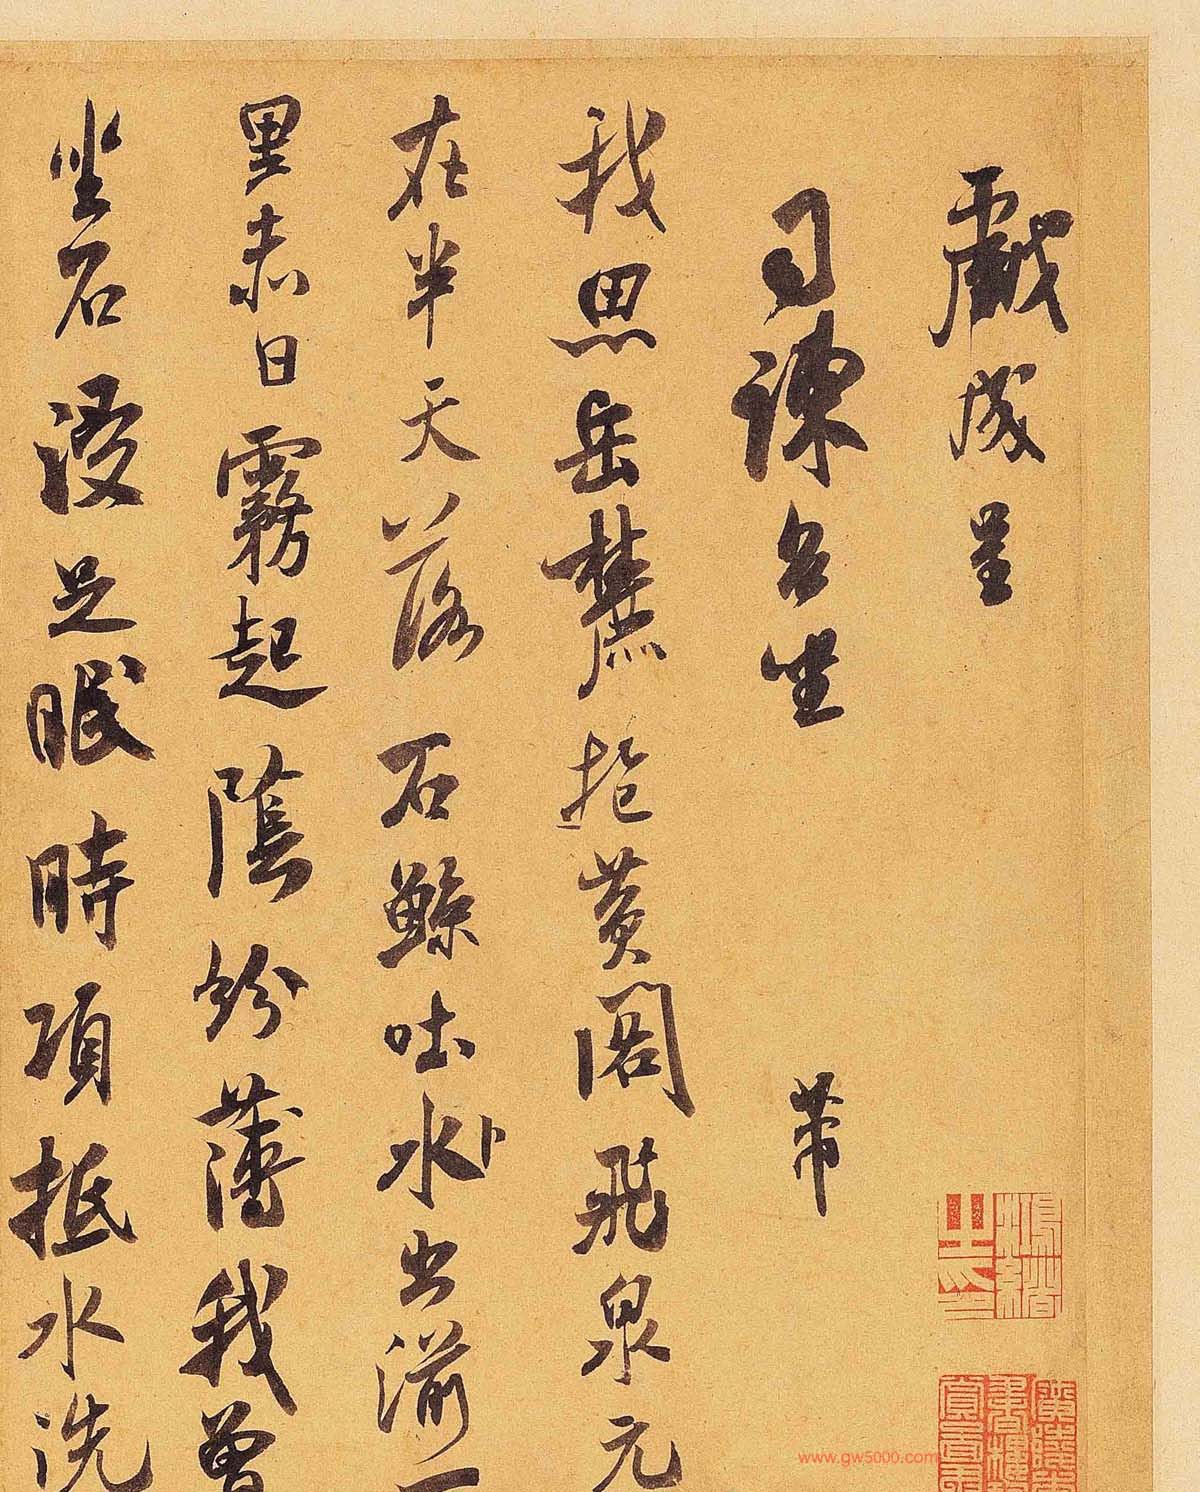 戲成呈
司諫台坐 芾
我思岳麓抱黄閣飛泉元
在半天落石鯨吐水卜出湔一
里赤日霧起陰紛薄我曾
坐石浸足眠時項抵水洗
www.gw5000.com